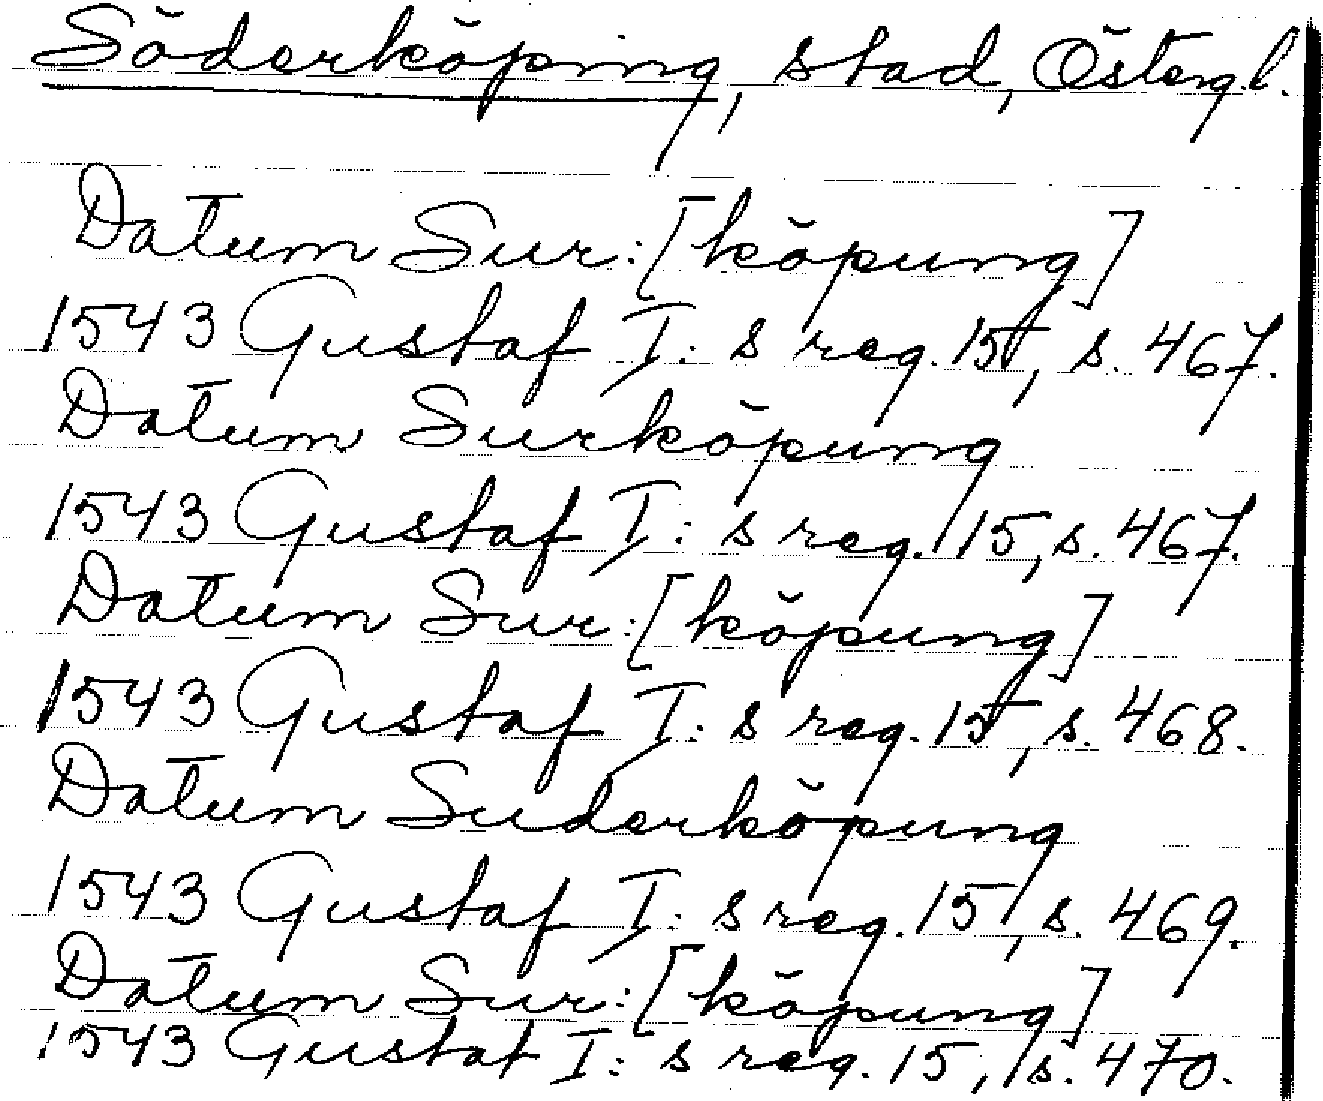 Söderköping, stad, Östergl.
Datum Sur:[köpung]
1543 Gustaf I: s reg. 15, s. 467.
Datum Surköpung
1543 Gustaf I: s reg. 15, s. 467.
Datum Sur:[köpung]
1543 Gustaf I: s reg. 15, s. 468.
Datum Suderköpung
1543 Gustaf I: s reg. 15, s. 469.
Datum Sur:[köpung]
1543 Gustaf I: s reg. 15, s. 470.